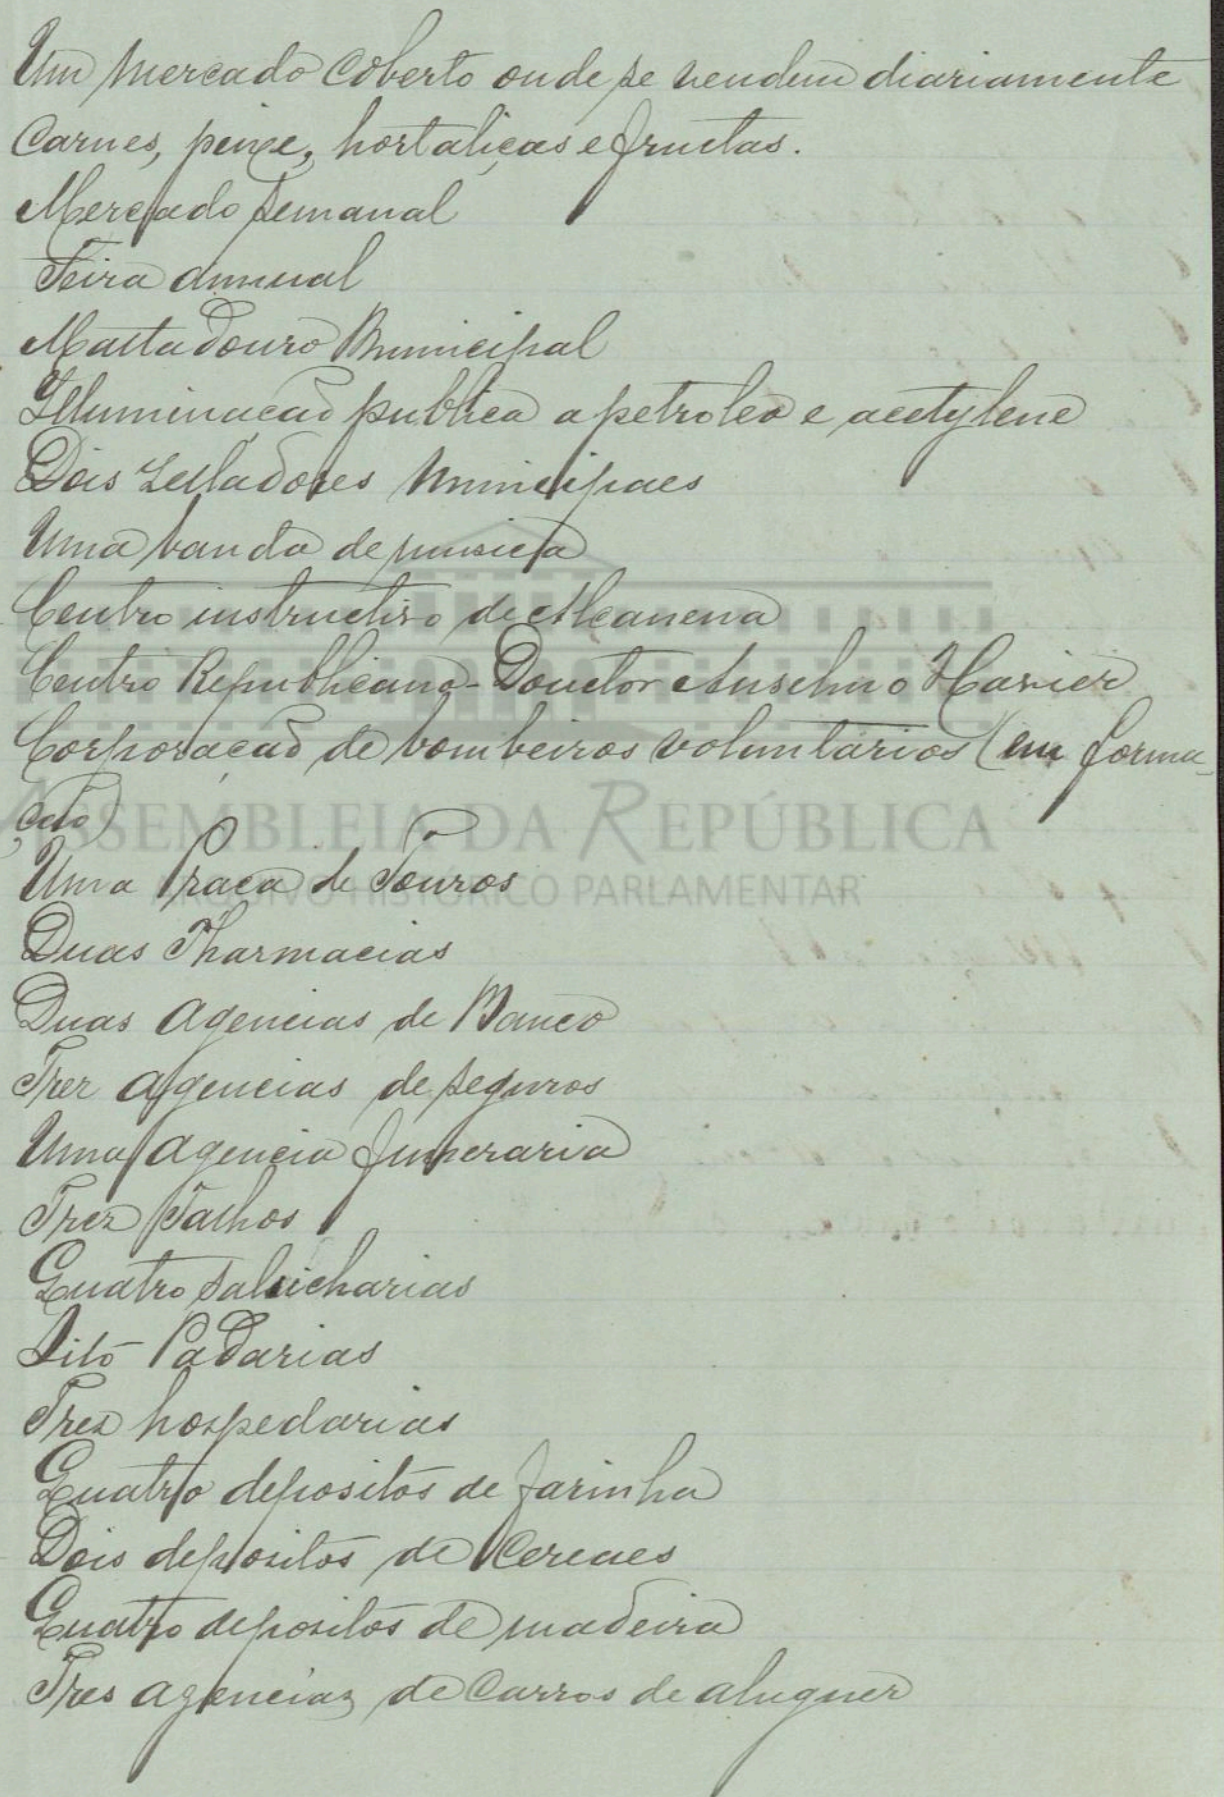 Um Mercado Coberto onde se vendem diariamente
Carnes, peixe, hortaliças e fructas.
Mercado semanal
Feira annual
Mattadouro Municipal
Illuminação publica a petroleo e acetylene
Dois Zelladores Municipaes
Uma banda de musica
Centro instructivo de Alcanena
Centro Republicano - Douctor Anselmo Xavier
Corporação de bombeiros voluntarios (em forma-
ção)
ASSEMBLEIA DA REPÚBLICA
Uma Praça de Touros
ARQUIVO HISTÓRICO PARLAMENTAR
Duas Pharmacias
Duas Agencias de Banco
Trez Agencias de seguros
Uma Agencia funeraria
Trez Talhos
Quatro salsicharias
Oito Padarias
Trez hospedarias
Quatro depositos de farinha
Dois depositos de Cereaes
Quatro depositos de madeira
Tres agencias de Carros de aluguer